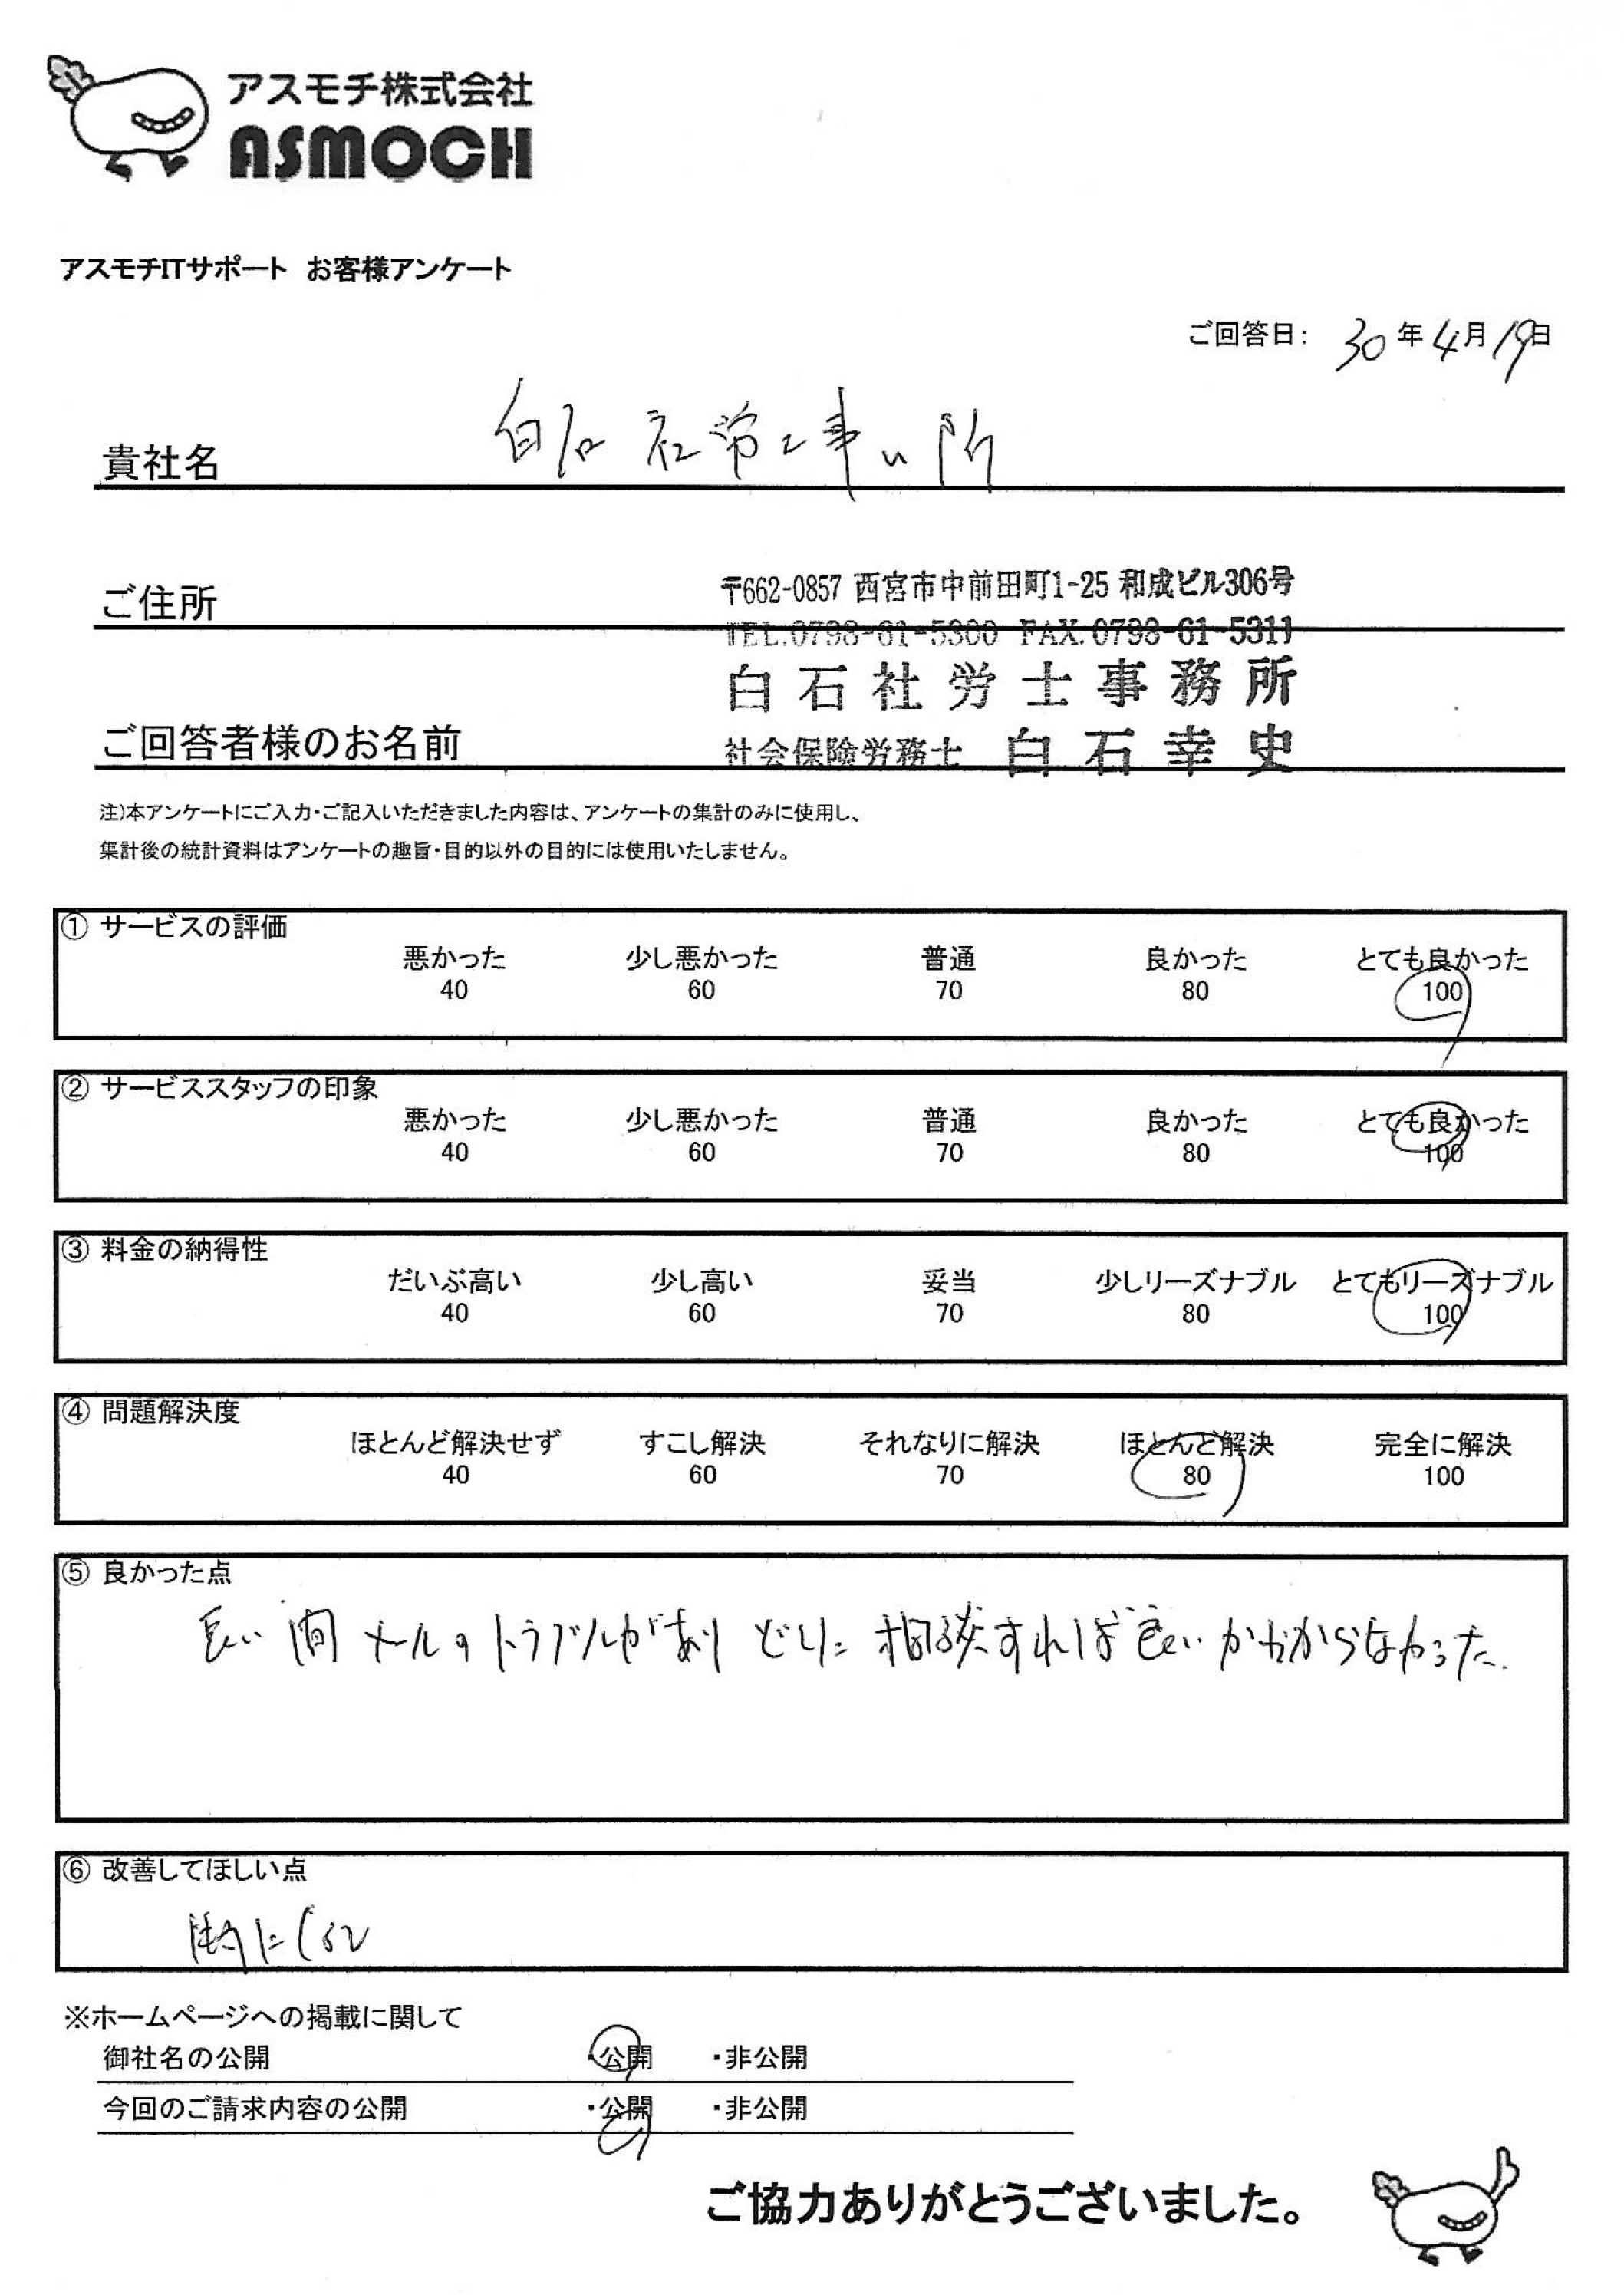 アスモチ株式会社
ASMOCH
アスモチITサポート お客様アンケート
ご回答日： 30年4月19日
貴社名 白石社労士事ム所
ご住所 〒662-0857 西宮市中前田町1-25 和成ビル306号
TEL.0798-61-5300 FAX.0798-61-5311
白石社労士事務所
ご回答者様のお名前 社会保険労務士 白石幸史
注)本アンケートにご入力・ご記入いただきました内容は、アンケートの集計のみに使用し、
集計後の統計資料はアンケートの趣旨・目的以外の目的には使用いたしません。
① サービスの評価
悪かった 少し悪かった 普通 良かった とても良かった
40 60 70 80 100
② サービススタッフの印象
悪かった 少し悪かった 普通 良かった とても良かった
40 60 70 80 100
③ 料金の納得性
だいぶ高い 少し高い 妥当 少しリーズナブル とてもリーズナブル
40 60 70 80 100
④ 問題解決度
ほとんど解決せず すこし解決 それなりに解決 ほとんど解決 完全に解決
40 60 70 80 100
⑤ 良かった点
長い間メールのトラブルがあり どこに相談すれば良いかわからなかった.
⑥ 改善してほしい点
特になし
※ホームページへの掲載に関して
御社名の公開 ・公開 ・非公開
今回のご請求内容の公開 ・公開 ・非公開
ご協力ありがとうございました。